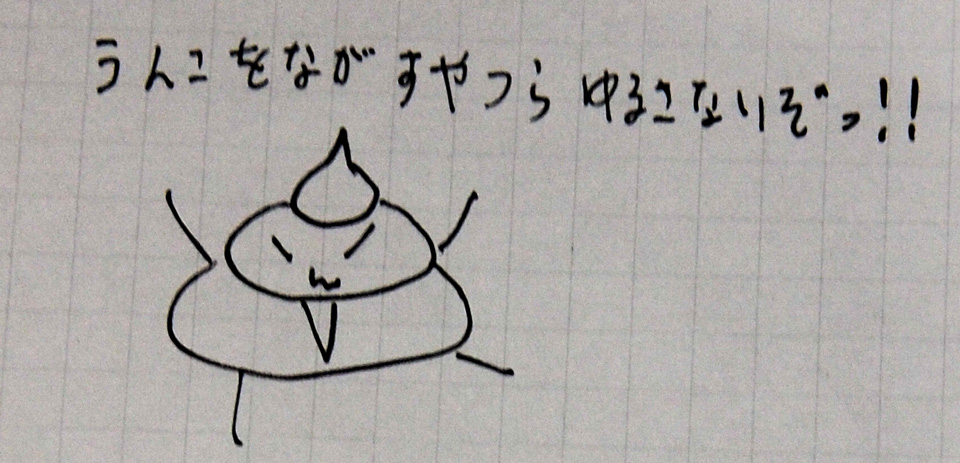 うんこをながすやつらゆるさないぞっ!!